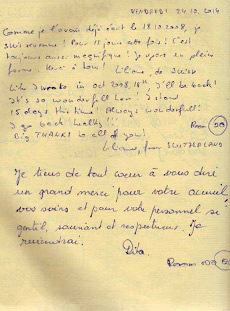 VENDREDI 24.10.2014
Comme je l'avais déjà écrit le 18.10.2008, je
suis revenue! Pour 15 jours cette fois! C'est
toujours aussi magnifique! Je repars en pleine
forme. Merci à tous!
Liliane, de SUISSE
Like I wrote in oct 2008 18th, I'll be back!
It's so wonderfull here! I stay
15 days this time! Always wonderfull!
I go back healthy!!!
Big THANKS to all of you!
Liliane, from SWITZERLAND
Room
Je tiens de tout coeur à vous dire
un grand merci pour votre accueil,
vos soins et pour votre personnel si
gentil, souriant et respectueux. Je
reviendrai.
Room